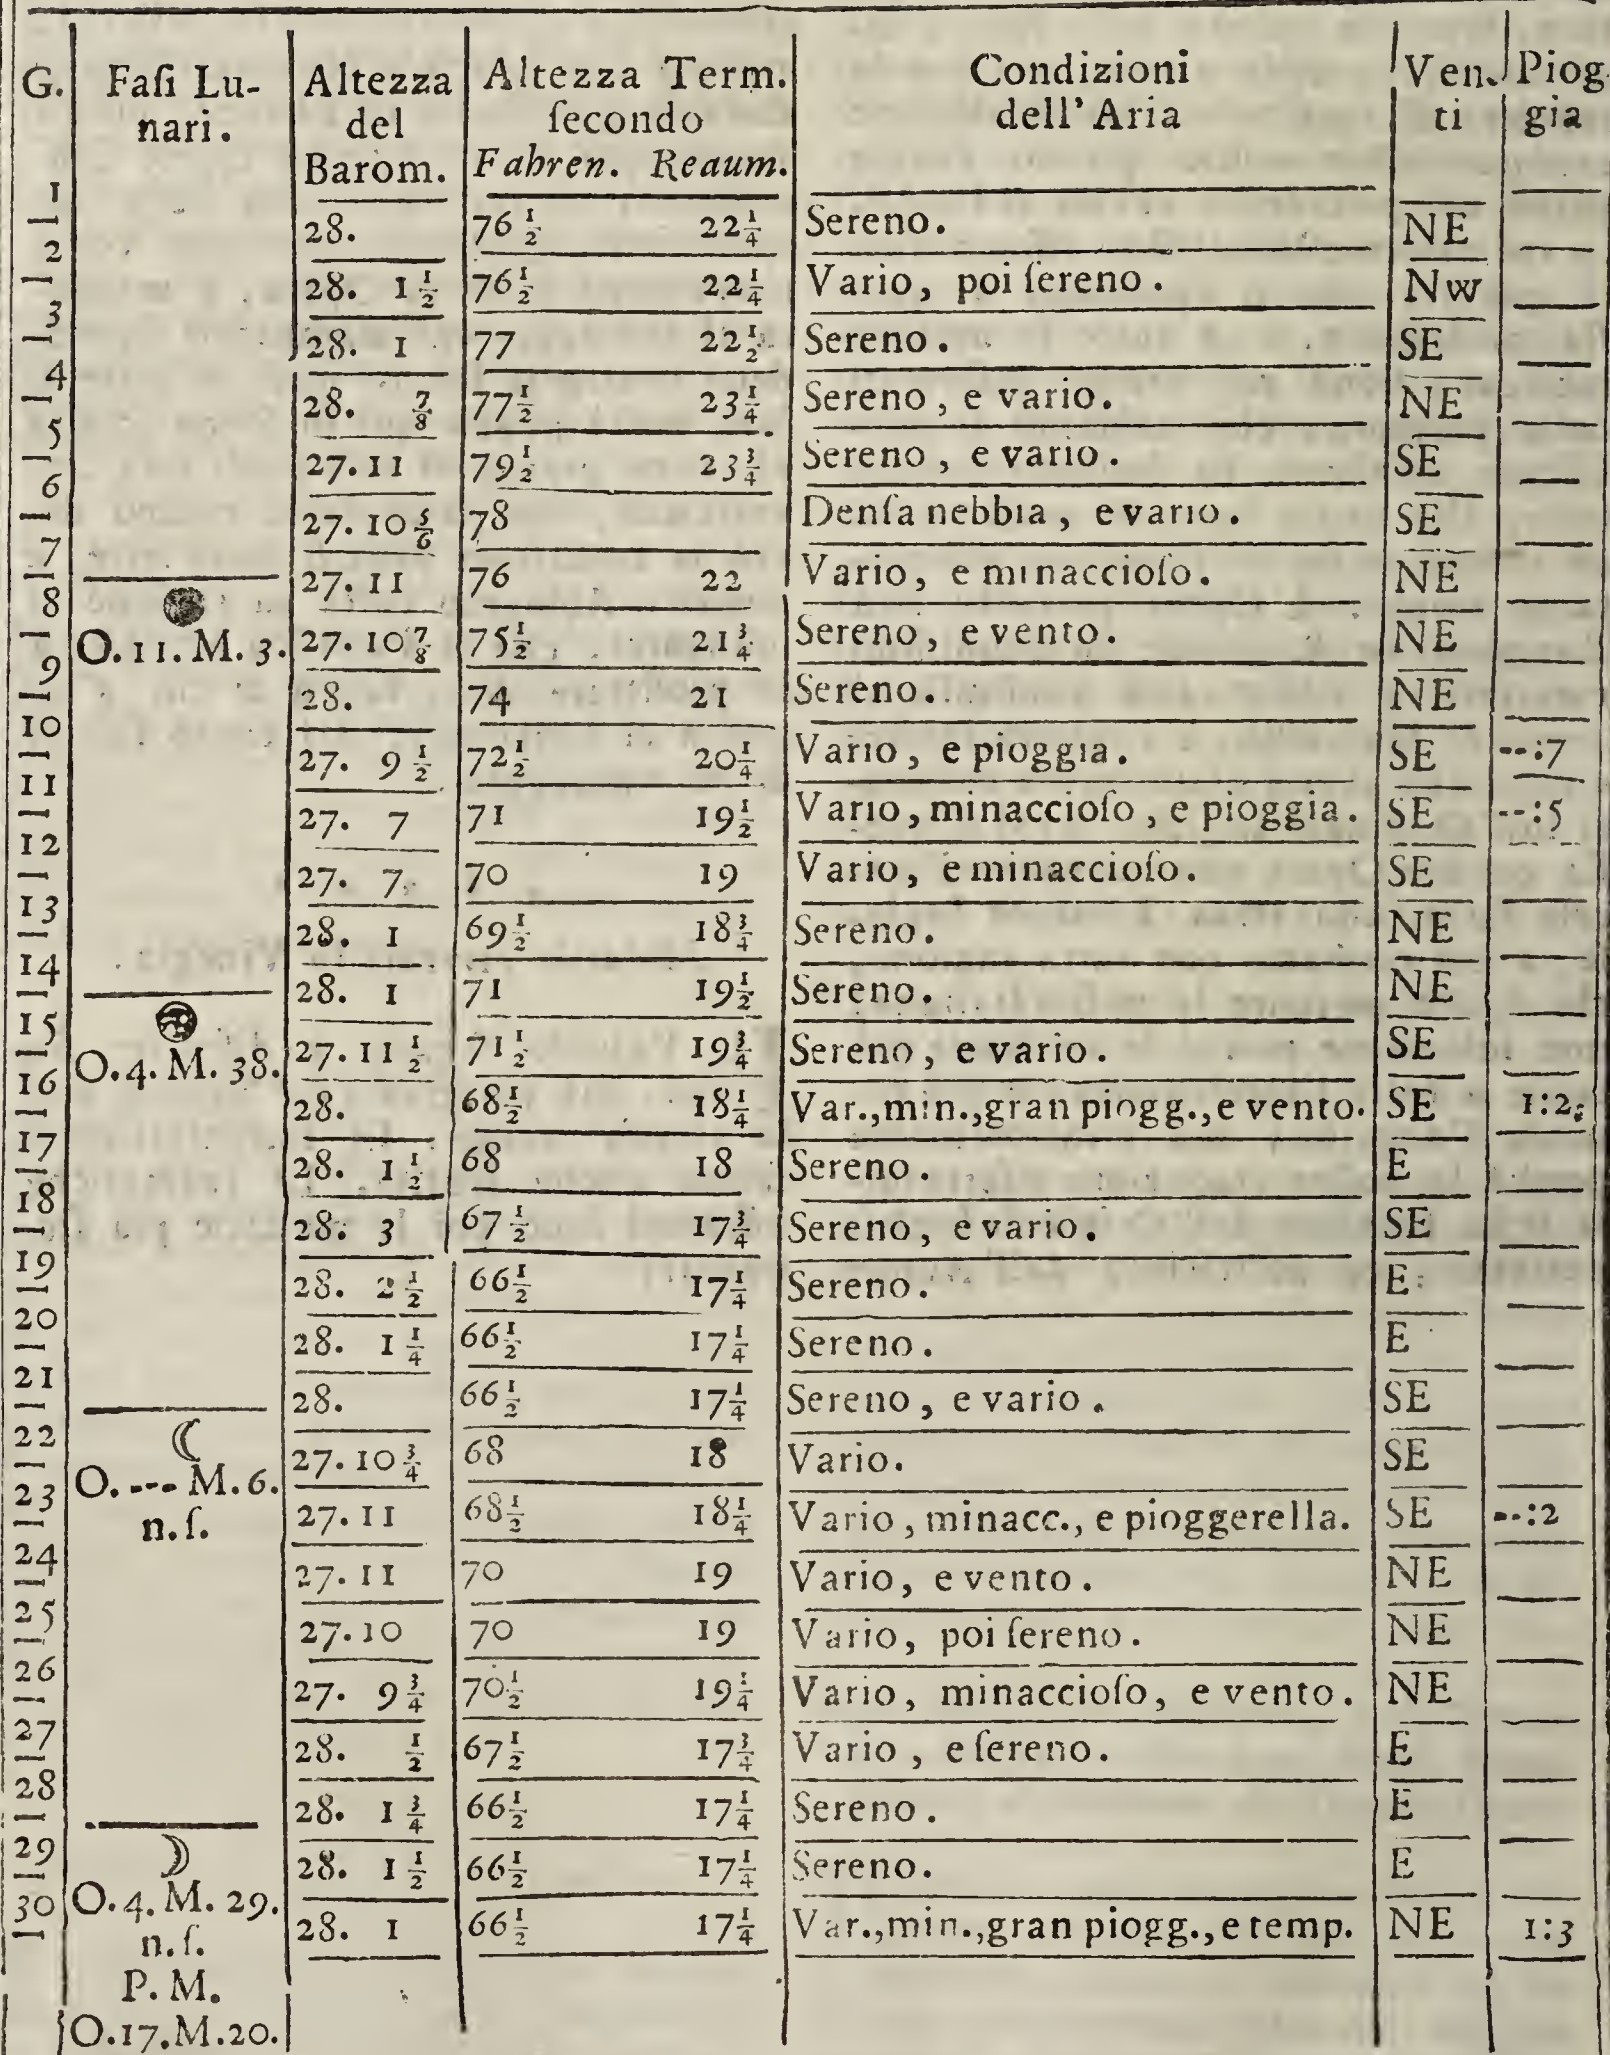 G. Faſi Lu-nari. Altezza del Barom. Altezza Term. ſecondo Fahren. Reaum. Condizioni dell'Aria Ven. ti Piog gia
1 28. 76 1/2 22 1/4 Sereno. NE
2 28. 1 1/2 76 1/2 22 1/4 Vario, poi ſereno. Nw
3 28. 1 77 22 1/2 Sereno. SE
4 28. 7/8 77 1/2 23 1/4 Sereno, e vario. NE
5 27. 11 79 1/2 23 3/4 Sereno, e vario. SE
6 27. 10 5/6 78 Denſa nebbia, e vario. SE
7 27. 11 76 22 Vario, e minaccioſo. NE
8 O. 11. M. 3. 27. 10 7/8 75 1/2 21 3/4 Sereno, e vento. NE
9 28. 74 21 Sereno. NE
10 27. 9 1/2 72 1/2 20 1/4 Vario, e pioggia. SE --:7
11 27. 7 71 19 1/2 Vario, minaccioſo, e pioggia. SE --:5
12 27. 7 70 19 Vario, e minaccioſo. SE
13 28. 1 69 1/2 18 3/4 Sereno. NE
14 28. 1 71 19 1/2 Sereno. NE
15 O. 4. M. 38. 27. 11 1/2 71 1/2 19 3/4 Sereno, e vario. SE
16 28. 68 1/2 18 1/4 Var., min., gran piogg., e vento. SE 1:2;
17 28. 1 1/2 68 18 Sereno. E
18 28. 3 67 1/2 17 3/4 Sereno, e vario. SE
19 28. 2 1/2 66 1/2 17 1/4 Sereno. E
20 28. 1 1/4 66 1/2 17 1/4 Sereno. E
21 28. 66 1/2 17 1/4 Sereno, e vario. SE
22 O. --- M. 6. 27. 10 3/4 68 18 Vario. SE
23 n. ſ. 27. 11 68 1/2 18 1/4 Vario, minacc., e pioggerella. SE --:2
24 27. 11 70 19 Vario, e vento. NE
25 27. 10 70 19 Vario, poi ſereno. NE
26 27. 9 3/4 70 1/2 19 1/4 Vario, minaccioſo, e vento. NE
27 28. 1/2 67 1/2 17 3/4 Vario, e ſereno. E
28 28. 1 3/4 66 1/2 17 1/4 Sereno. E
29 28. 1 1/2 66 1/2 17 1/4 Sereno. E
30 O. 4. M. 29. 28. 1 66 1/2 17 1/4 Var., min., gran piogg., e temp. NE 1:3
n. ſ.
P. M.
O. 17. M. 20.